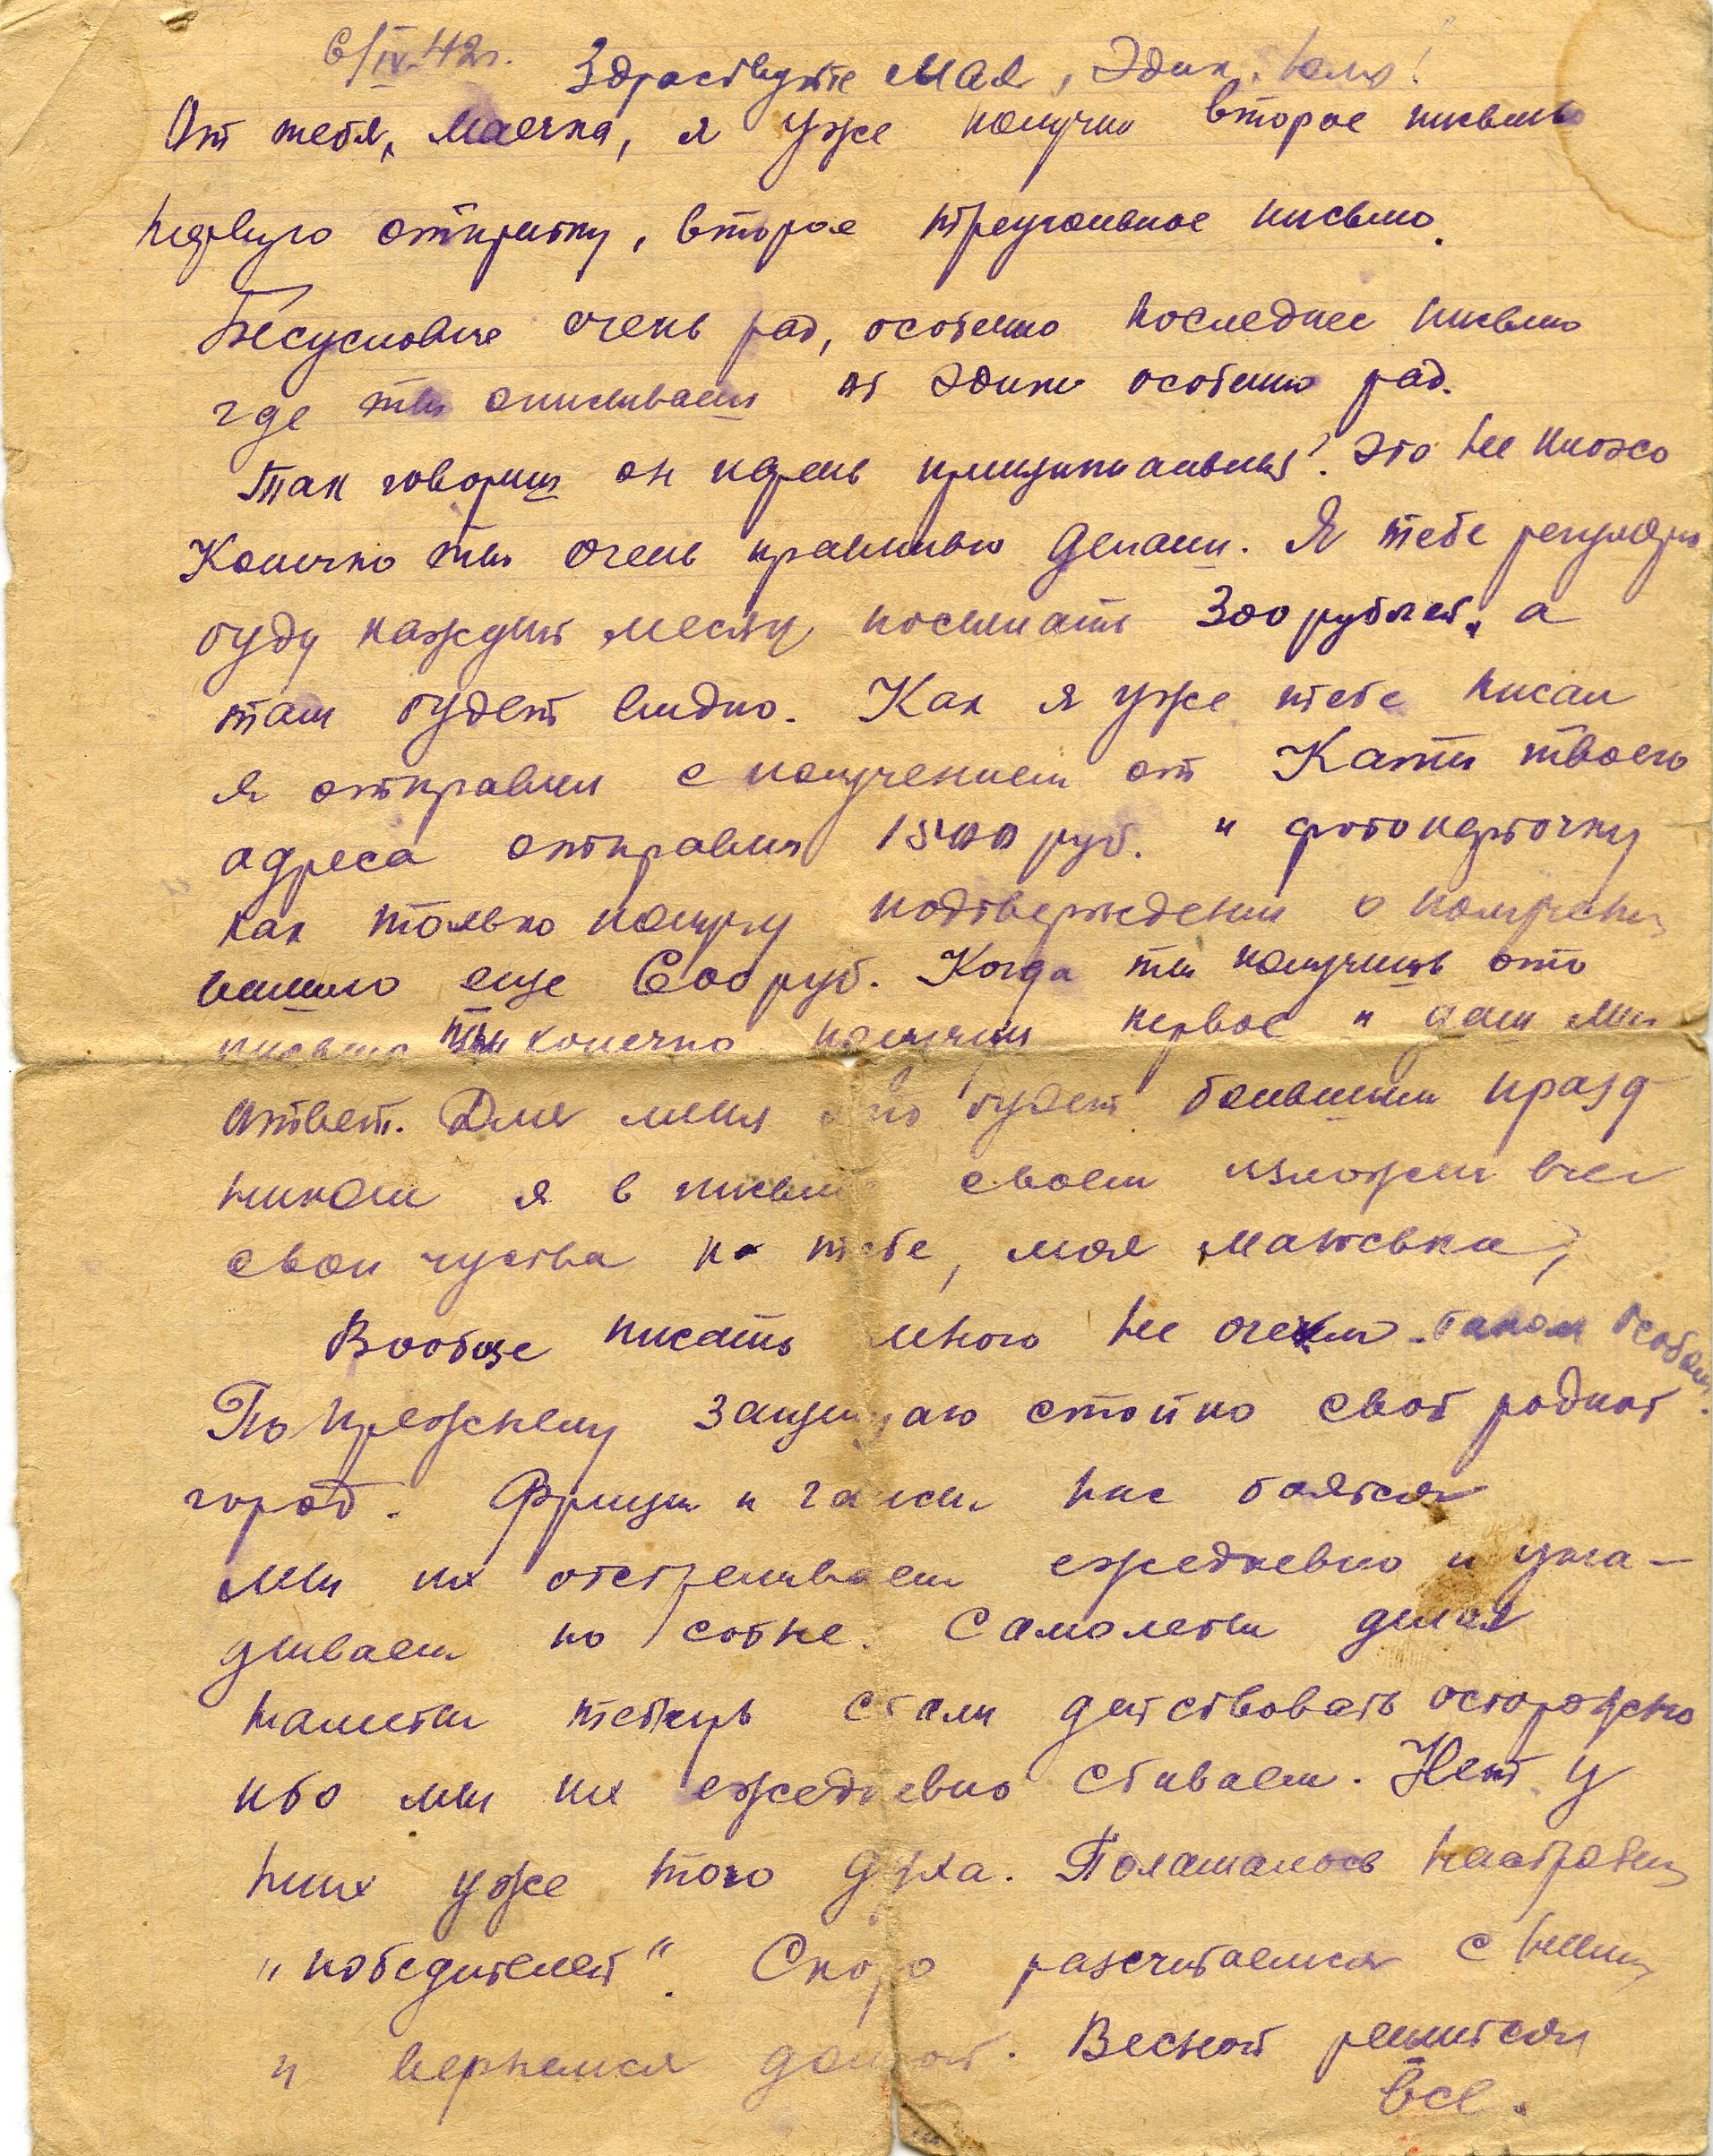 6/IV-42г. Здраствуйте Мая, Эдик, Юля!
От тебя, Маечка, я уже получил второе письмо
первую открытку, второе треугольное письмо.
Безусловно очень рад, особенно последнее письмо
где ты описываеш об Эдике особенно рад.
Так говориш он парень принципиальный? Это не плохо
Конечно ты очень правильно делаеш. Я тебе регулярно
буду каждый месяц посылать 300 рублей, а
там будет видно. Как я уже тебе писал
я отправил с получением от Кати твоего
адреса отправил 1500 руб. и фотокарточку
как только получу подтверждения о получении
вышлю еще 600 руб. Когда ты получишь это
письмо ты конечно получиш первое и даш мне
ответ. Для меня это будет большим празд
ником я в письме своем изложил все
свои чуства к тебе, моя
Вообще писать много не о
По прежнему защищаю стойко свой родной
город. Фрицы и гансы нас боятся
мы их отстреливаем ежедневно и укла-
дываем по сотне. Самолеты
налеты теперь стали действовать осторожно
ибо мы их ежедневно сбиваем. Нет у
них уже того духа. Поломалось настроение
"победителей". Скоро разсчитаемся с ними
и вернемся домой. Весной решится
все.